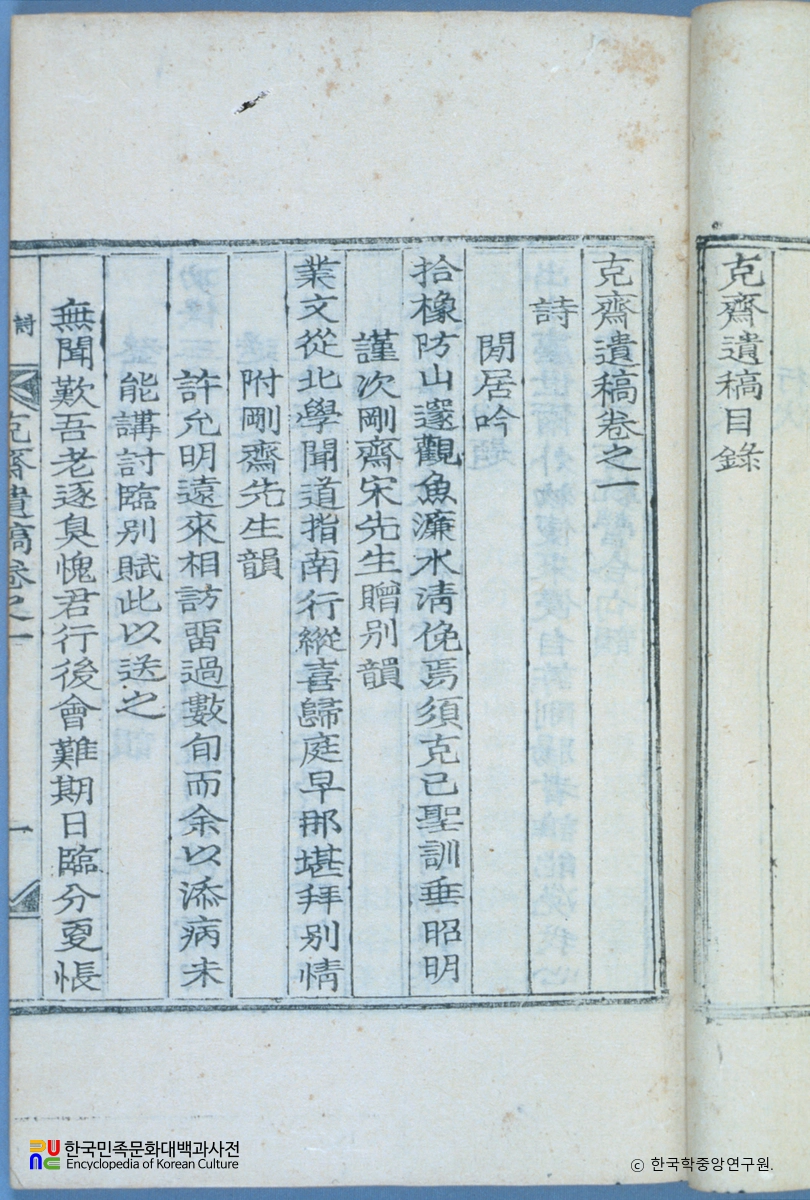 克齋遺稿目錄
克齋遺稿卷之一
詩
閒居吟
拾橡防山邃觀魚濂水淸俛焉須克己聖訓垂昭明
謹次剛齋宋先生贈別韻
業文從北學聞道指南行縱喜歸庭早那堪拜別情
附剛齋先生韻
許允明遠來相訪留過數旬而余以添病未
能講討臨別賦此以送之
無聞歎吾老逐臭愧君行後會難期日臨分更悵
詩 克齋遺稿卷之一 一
한국민족문화대백과사전
Encyclopedia of Korean Culture
ⓒ 한국학중앙연구원.